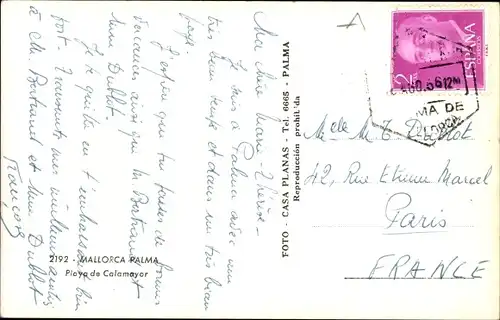 Ma chère Marie-Thérèse
Je suis à Palma avec un
très beau temps et dans un très beau
pays.
J'espère que tu passes de bonnes
vacances ainsi que M. Bertrand et
Mme Dublot.
Je te quitte en t'embrassant bien
fort. Transmets mes meilleures amitiés
à M. Bertrand et Mme Dublot
François
2192 - MALLORCA PALMA
Playa de Calamayor
FOTO - CASA PLANAS - Tel. 6665 - PALMA
Reproducción prohib.da
2
ESPAÑA
CORREOS
AGO.56 12
MA DE
Melle M. T. Dublot
42, Rue Etienne Marcel
Paris
FRANCE